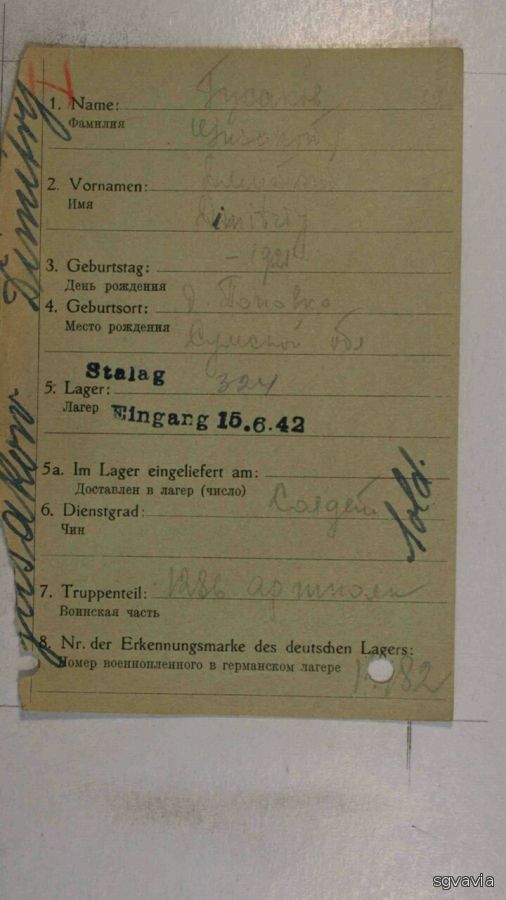 1. Name: Гусаков
Фамилия
2. Vornamen:
Имя Dimitriy
3. Geburtstag: – 1921
День рождения
4. Geburtsort: д. Поповка
Место рождения Сумской обл
Stalag
5: Lager: 324
Лагерь Eingang 15.6.42
5a. Im Lager eingeliefert am:
Доставлен в лагерь (число)
6. Dienstgrad: Солдат
Чин
Sold.
7. Truppenteil: артполк
Воинская часть
8. Nr. der Erkennungsmarke des deutschen Lagers:
Номер военнопленного в германском лагере
Gusakow Dimitriy
sgvavia